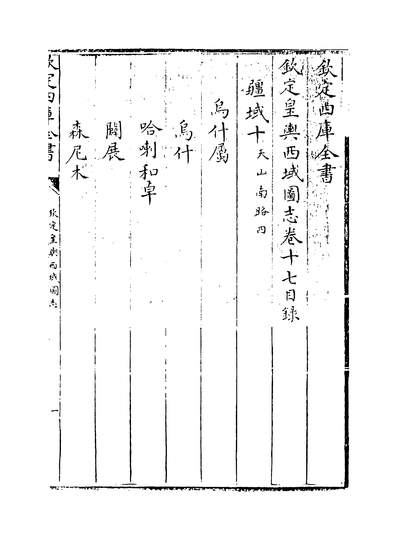 欽定四庫全書
欽定皇輿西域圖志卷十七目録
疆域十天山南路四
烏什屬
烏什
哈喇和卓
闢展
森尼木
欽定四庫全書
欽定皇輿西域圖志
一